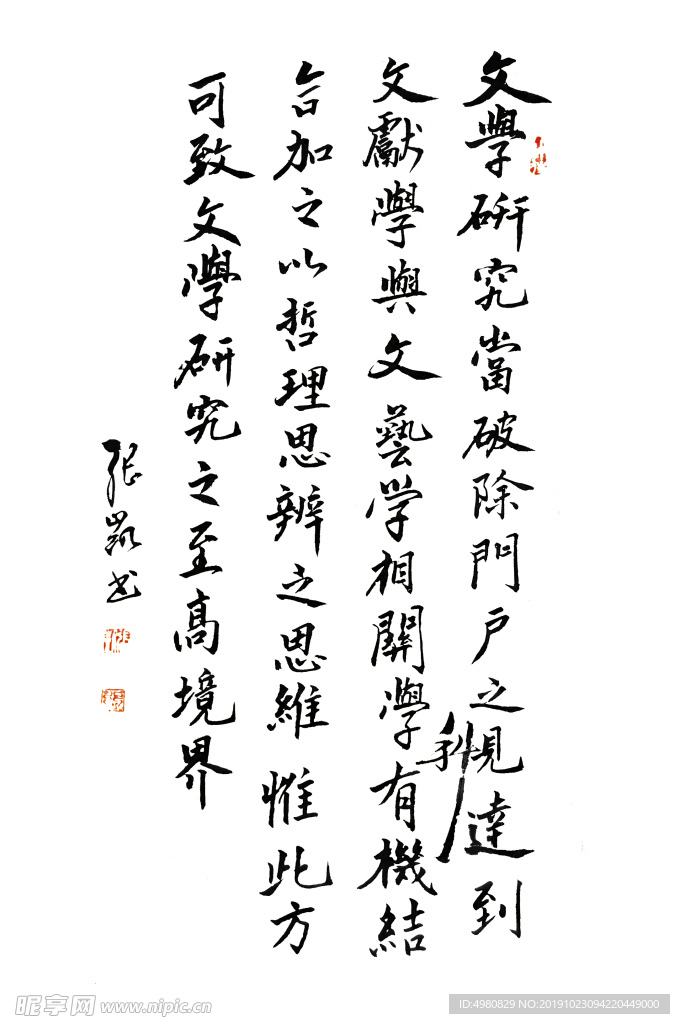 文學研究當破除門户之見達到
文獻學與文藝学相關學科有機結
合加之以哲理思辨之思維惟此方
可致文學研究之至高境界
張凱书
昵享网 www.nipic.cn
ID:4980829 NO:20191023094220449000